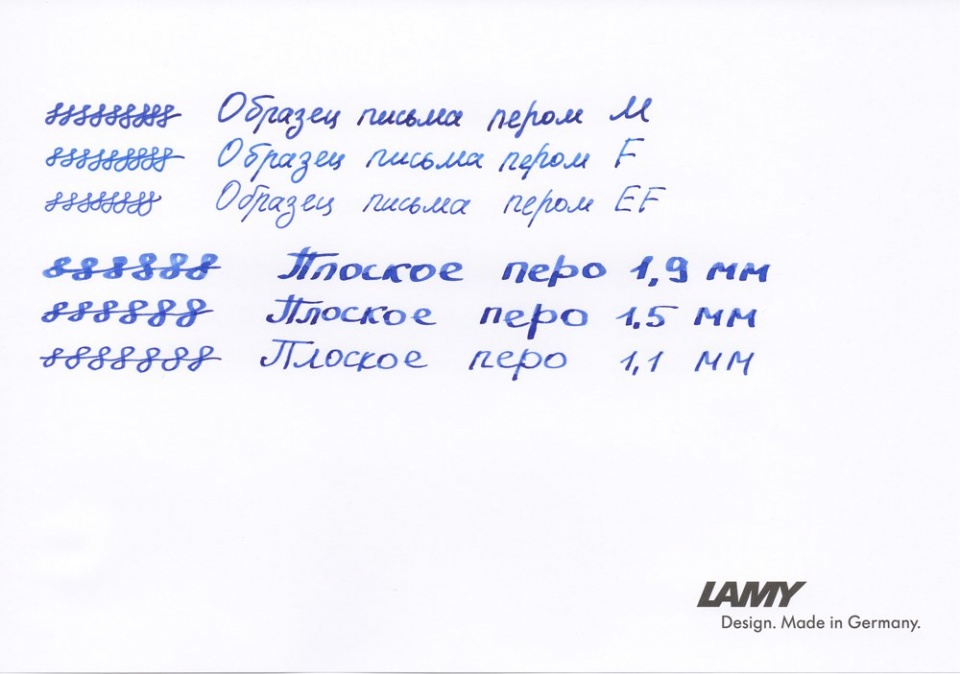 Образец письма пером M
Образец письма пером F
Образец письма пером EF
Плоское перо 1,9 мм
Плоское перо 1,5 мм
Плоское перо 1,1 мм
LAMY
Design. Made in Germany.